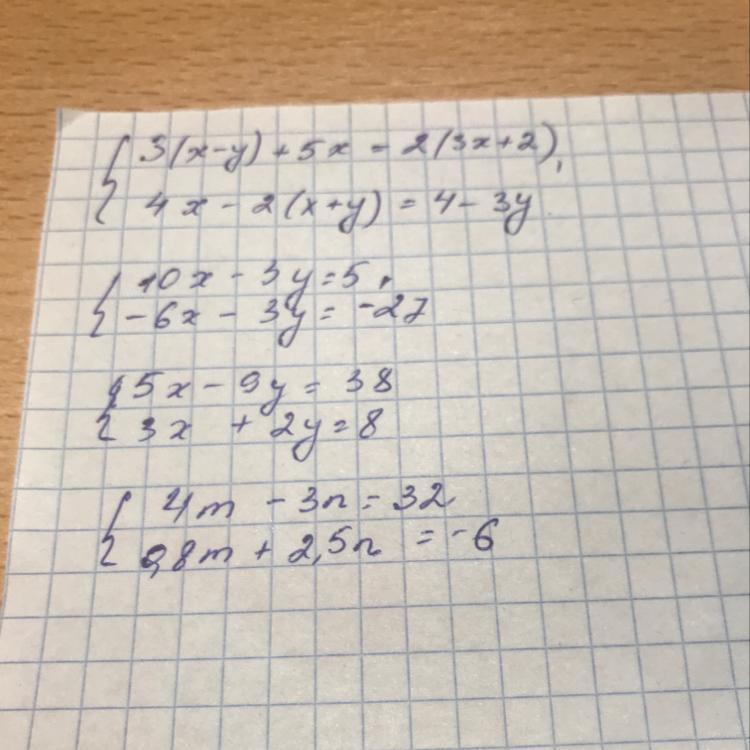 3(x-y)+5x = 2(3x+2),
4x - 2(x+y) = 4 - 3y
10x - 3y = 5,
-6x - 3y = -27
5x - 9y = 38
3x + 2y = 8
4m - 3n = 32
0,8m + 2,5n = -6